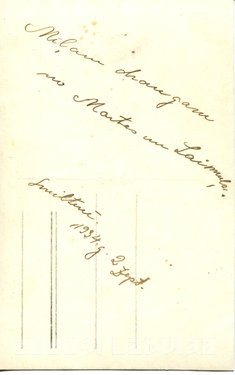 Mīļam draugam
no Martas un Laimiņas.
Smiltenē.
1934.g. 2 Sept.